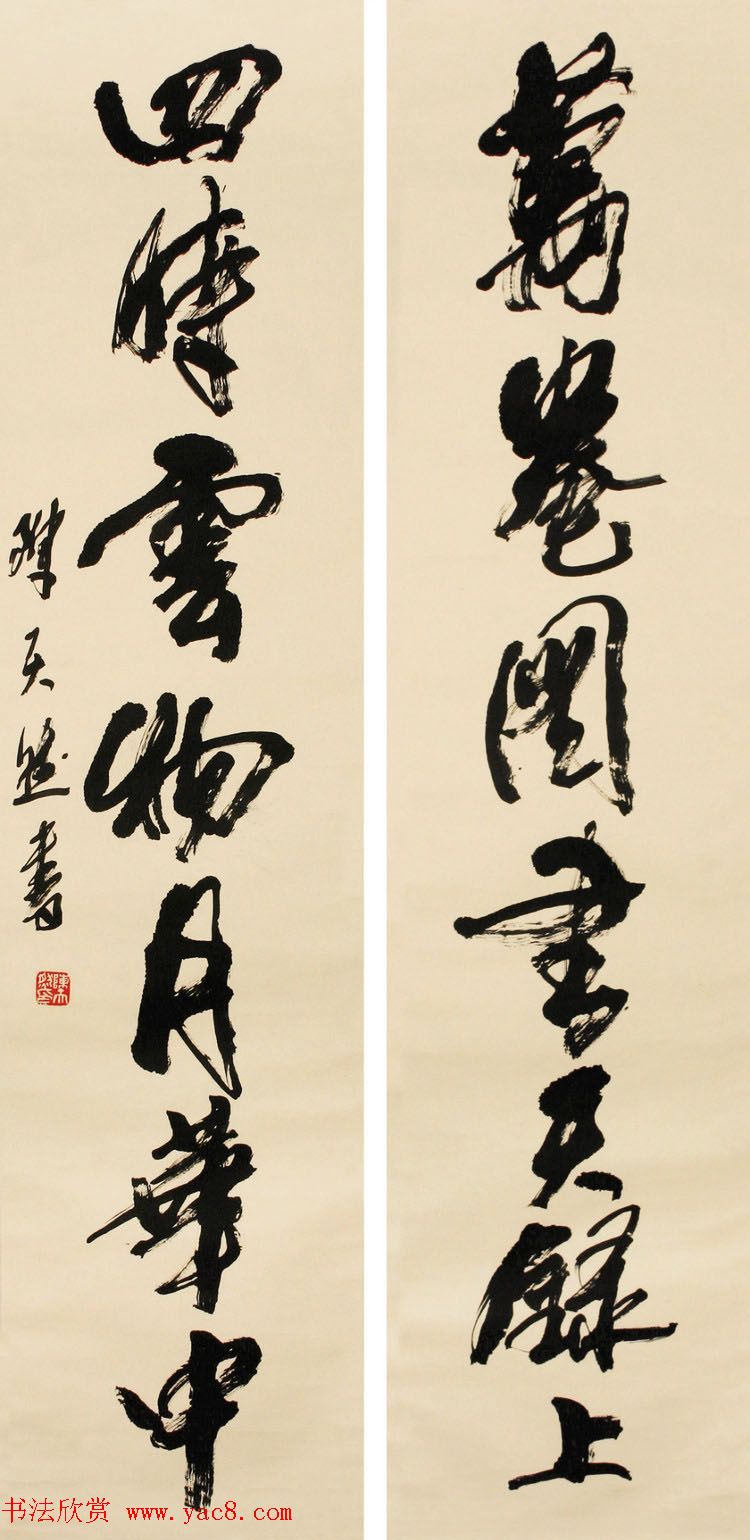 萬卷圖書天錄上
四時雲物月華中
陳天然書
陳天然印
书法欣赏 www.yac8.com